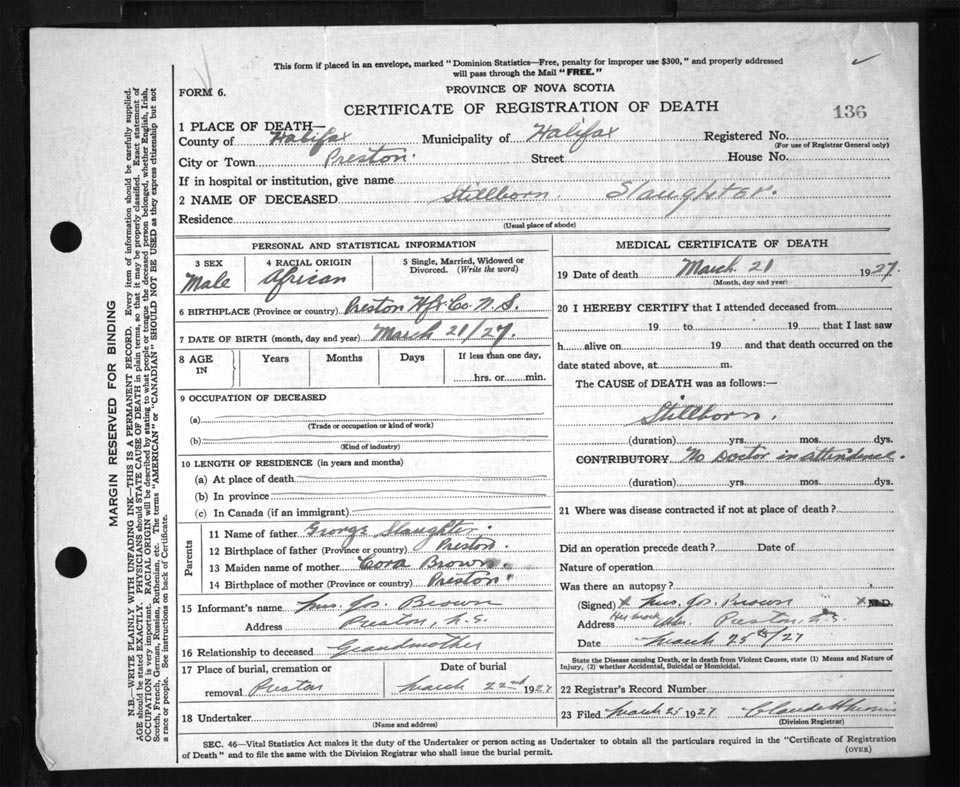 This form if placed in an envelope, marked "Dominion Statistics—Free, penalty for improper use $300," and properly addressed
will pass through the Mail "FREE."
FORM 6.
PROVINCE OF NOVA SCOTIA
CERTIFICATE OF REGISTRATION OF DEATH
136
1 PLACE OF DEATH—
County of Halifax Municipality of Halifax Registered No.
(For use of Registrar General only)
City or Town Preston. Street House No.
If in hospital or institution, give name
2 NAME OF DECEASED Stillborn Slaughter.
Residence
(Usual place of abode)
PERSONAL AND STATISTICAL INFORMATION
3 SEX 4 RACIAL ORIGIN 5 Single, Married, Widowed or
Divorced. (Write the word)
Male African
6 BIRTHPLACE (Province or country) Preston Hfx Co N.S.
7 DATE OF BIRTH (month, day and year) March 21/27.
8 AGE IN Years Months Days If less than one day,
hrs. or min.
9 OCCUPATION OF DECEASED
(a)
(Trade or occupation or kind of work)
(b)
(Kind of industry)
10 LENGTH OF RESIDENCE (in years and months)
(a) At place of death
(b) In province
(c) In Canada (if an immigrant)
Parents
11 Name of father George Slaughter.
12 Birthplace of father (Province or country) Preston.
13 Maiden name of mother Cora Brown.
14 Birthplace of mother (Province or country) Preston.
15 Informant's name Mrs. Jos. Brown
Address Preston, N.S.
16 Relationship to deceased Grandmother
17 Place of burial, cremation or Date of burial
removal Preston March 22nd 1927
18 Undertaker
(Name and address)
MEDICAL CERTIFICATE OF DEATH
19 Date of death March 21 1927.
(Month, day and year)
20 I HEREBY CERTIFY that I attended deceased from
19 to 19 that I last saw
h alive on 19 and that death occurred on the
date stated above, at m.
The CAUSE of DEATH was as follows:—
Stillborn.
(duration) yrs. mos. dys.
CONTRIBUTORY No Doctor in attendence.
(duration) yrs. mos. dys.
21 Where was disease contracted if not at place of death?
Did an operation precede death? Date of
Nature of operation
Was there an autopsy?
(Signed) X Mrs. Jos. Brown X M.D.
Address Her mark Preston, N.S.
Date March 25th/27
State the Disease causing Death, or in death from Violent Causes, state (1) Means and Nature of
Injury, (2) whether Accidental, Suicidal or Homicidal.
22 Registrar's Record Number
23 Filed March 25 1927
(Division Registrar)
SEC. 46—Vital Statistics Act makes it the duty of the Undertaker or person acting as Undertaker to obtain all the particulars required in the "Certificate of Registration
of Death" and to file the same with the Division Registrar who shall issue the burial permit.
(OVER)
MARGIN RESERVED FOR BINDING
N.B.—WRITE PLAINLY WITH UNFADING INK—THIS IS A PERMANENT RECORD. Every item of information should be carefully supplied.
AGE should be stated EXACTLY. PHYSICIANS should STATE CAUSE OF DEATH in plain terms, so that it may be properly classified. Exact statement of
OCCUPATION is very important. RACIAL ORIGIN will be described by stating to what people or tongue the deceased person belonged, whether English, Irish,
Scotch, French, German, Russian, Ruthenian, etc. The terms "AMERICAN" or "CANADIAN" SHOULD NOT BE USED as they express citizenship but not
a race or people. See instructions on back of Certificate.